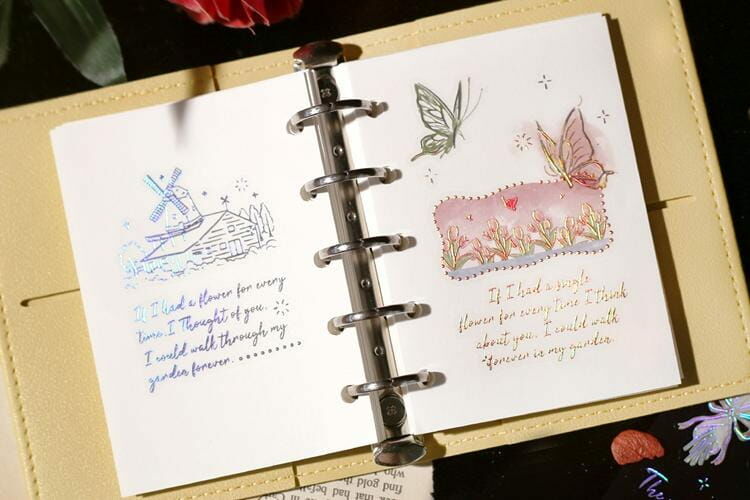 If I had a flower for every
time I Thought of you.
I could walk through my
garden forever.
If I had a single
flower for every time I think
about you. I could walk
forever in my garden.
find gold that had
who